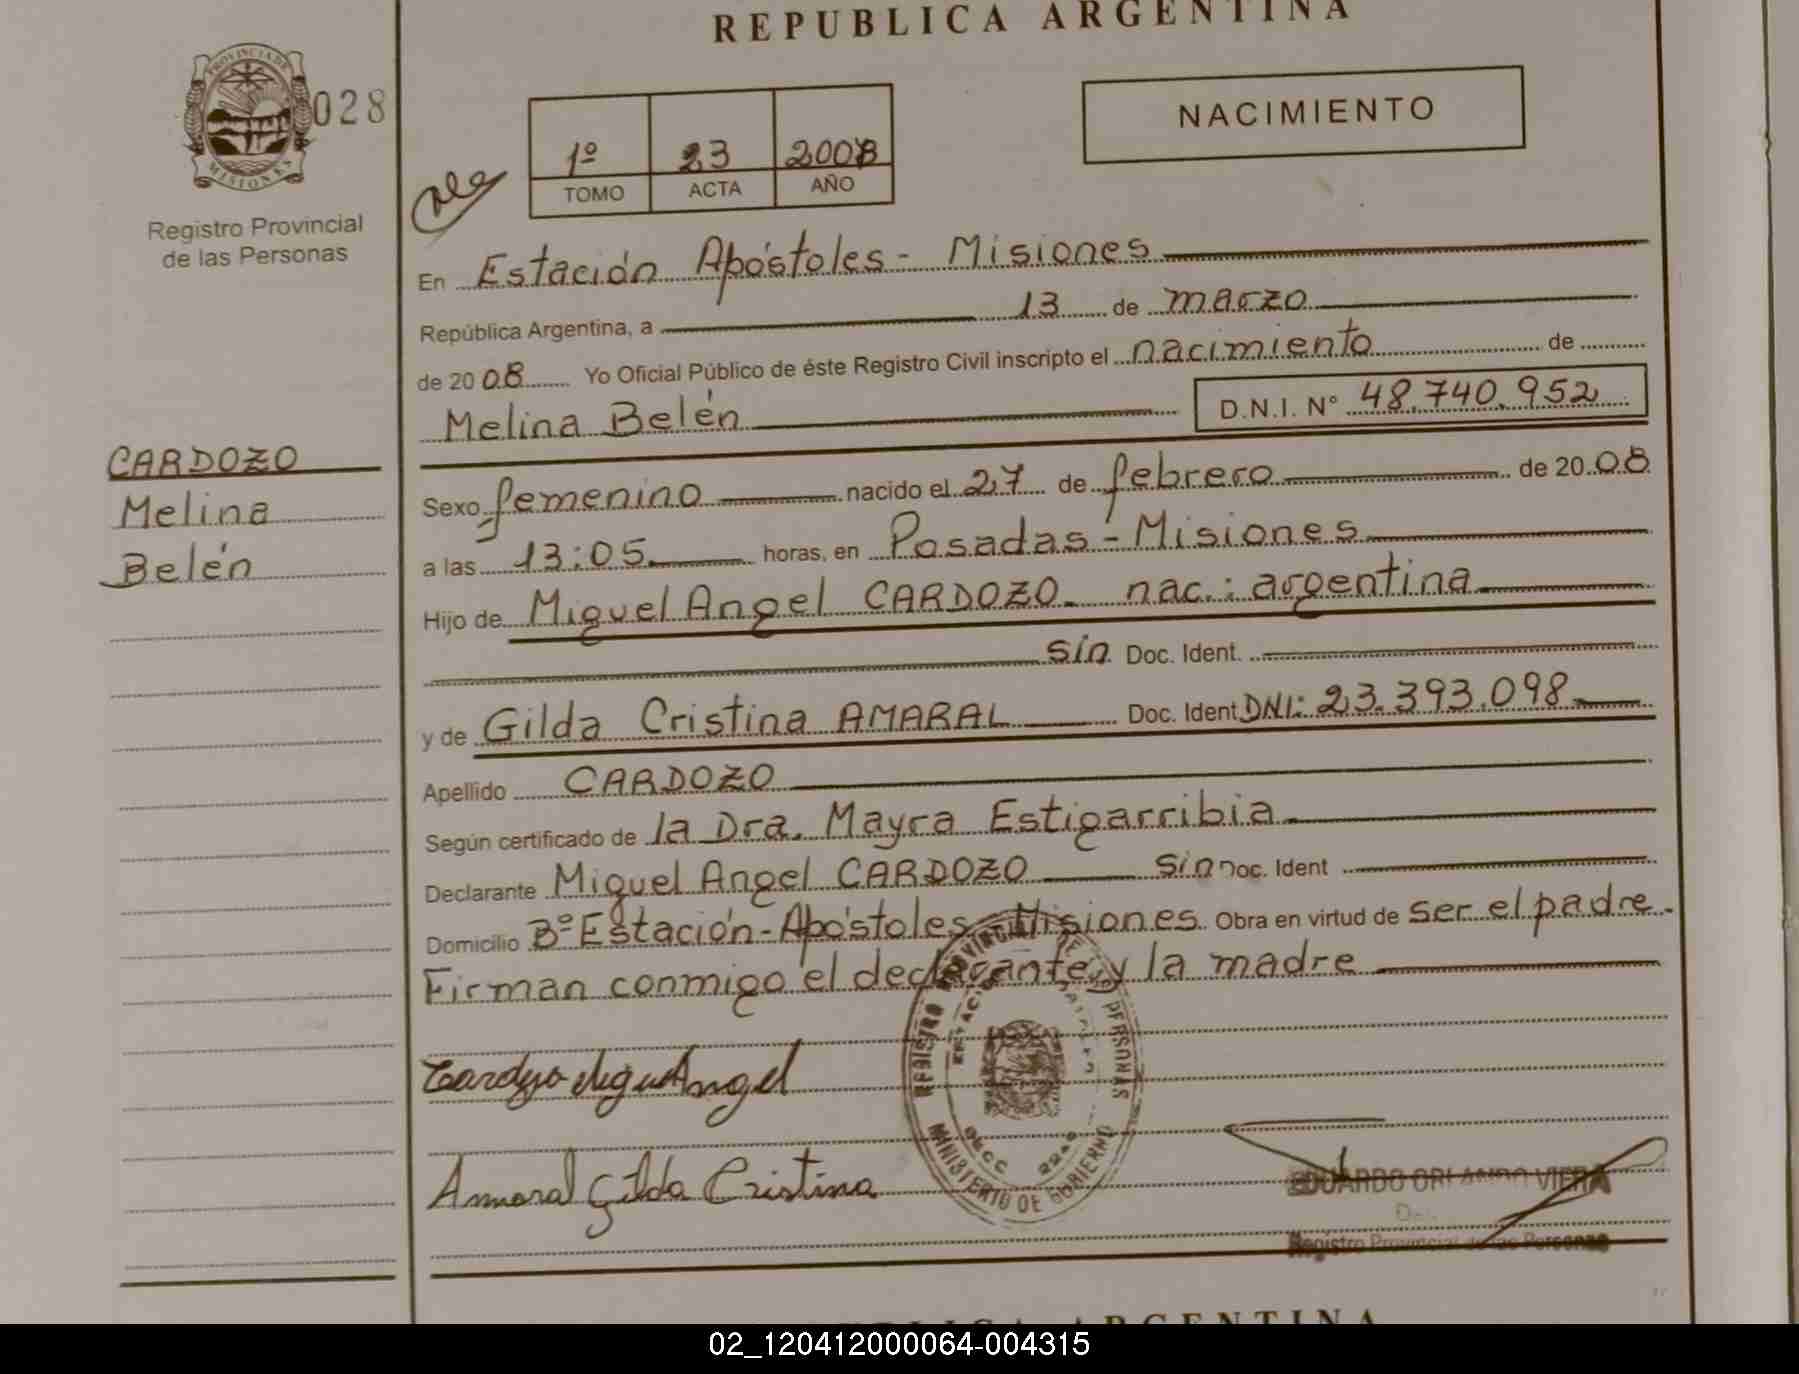 REPUBLICA ARGENTINA
PROVINCIA DE
MISIONES
028
Registro Provincial
de las Personas
1º 23 2008
TOMO ACTA AÑO
NACIMIENTO
En Estación Apóstoles - Misiones
República Argentina, a 13 de marzo
de 2008 Yo Oficial Público de éste Registro Civil inscripto el nacimiento de
Melina Belén D.N.I. N° 48.740.952
CARDOZO
Melina
Belén
Sexo femenino nacido el 27 de febrero de 2008
a las 13:05 horas, en Posadas - Misiones
Hijo de Miguel Angel CARDOZO nac.: argentina
sin Doc. Ident.
y de Gilda Cristina AMARAL Doc. Ident DNI: 23.393.098
Apellido CARDOZO
Según certificado de la Dra. Mayra Estigarribia
Declarante Miguel Angel CARDOZO sin Doc. Ident
Domicilio Bº Estación - Apóstoles - Misiones Obra en virtud de ser el padre.
Firman conmigo el declarante y la madre
REGISTRO PROVINCIAL DE LAS PERSONAS
MINISTERIO DE GOBIERNO
Cardozo Miguel Angel
Amaral Gilda Cristina
EDUARDO ORLANDO VIERA
Registro Provincial de las Personas
REPUBLICA ARGENTINA
02_120412000064-004315